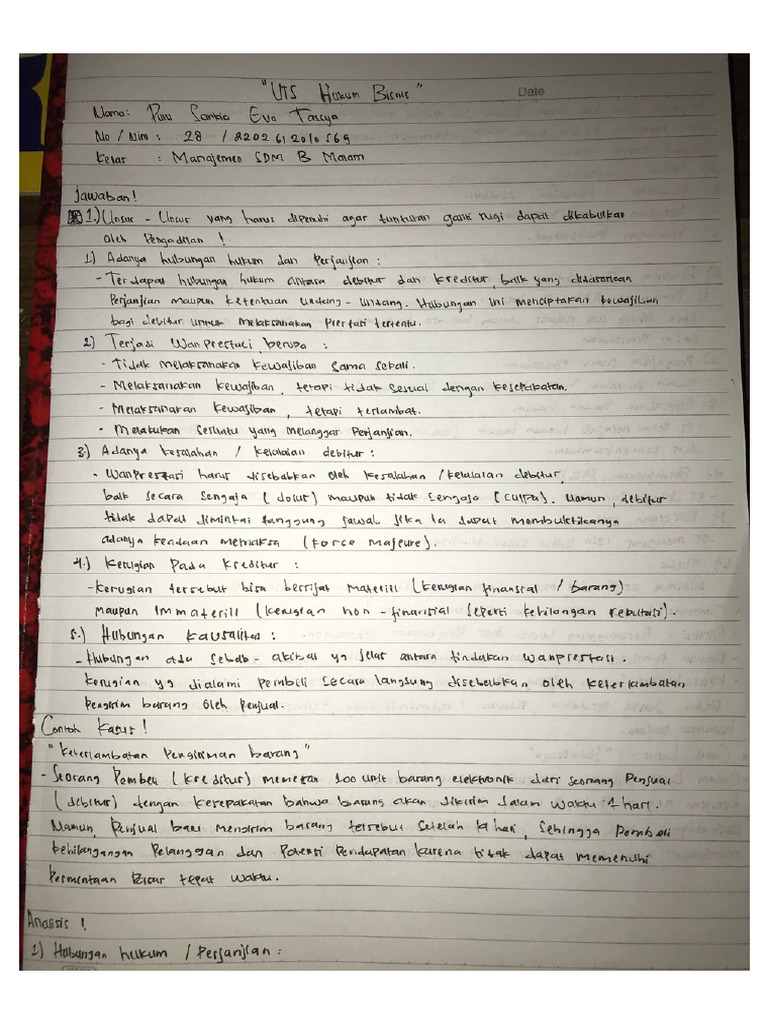 "UTS Hukum Bisnis"
Date
Nama: Putu Santhia Eva Tasya
No / Nim : 28 / 2202612010569
Kelas : Manajemen SDM B Malam
Jawaban!
1.) Unsur - Unsur yang harus dipenuhi agar tuntutan ganti rugi dapat dikabulkan
oleh Pengadilan !
1.) Adanya hubungan hukum dan Perjanjian :
- Terdapat hubungan hukum antara debitur dan kreditur, baik yang didasarkan
Perjanjian maupun ketentuan undang - undang. Hubungan ini menciptakan kewajiban
bagi debitur untuk melaksanakan Prestasi tertentu.
2) Terjadi Wanprestasi, berupa :
- Tidak melaksanakan kewajiban sama sekali.
- Melaksanakan kewajiban, tetapi tidak sesuai dengan kesepakatan.
- Melaksanakan kewajiban, tetapi terlambat.
- Melakukan sesuatu yang melanggar Perjanjian.
3.) Adanya kesalahan / kelalaian debitur :
- Wanprestasi harus disebabkan oleh kesalahan / kelalaian debitur,
baik secara sengaja (dolus) maupun tidak sengaja (culpa). Namun, debitur
tidak dapat dimintai tanggung jawab jika ia dapat membuktikanya
adanya keadaan memaksa (force majeure).
4.) Kerugian Pada Kreditur :
- kerugian tersebut bisa bersifat materiil (kerugian finansial / barang)
maupun immateriil (kerugian non - finansial seperti kehilangan reputasi).
5.) Hubungan kausalitas :
- Hubungan ada sebab - akibat yg jelas antara tindakan wanprestasi.
kerugian yg dialami pembili secara langsung disebabkan oleh keterlambatan
pengirim barang oleh penjual.
Contoh Kasus !
"Keterlambatan Pengiriman barang"
- Seorang Pembeli (kreditur) memesan 100 unit barang elektronik dari seorang Penjual
(debitur) dengan kesepakatan bahwa barang akan dikirim dalam waktu 7 hari.
Namun, Penjual baru mengirim barang tersebut setelah 14 hari, sehingga Pembeli
kehilangangan Pelanggan dan Potensi Pendapatan karena tidak dapat memenuhi
Permintaan Pasar tepat waktu.
Analisis !
1) Hubungan hukum / Perjanjian :